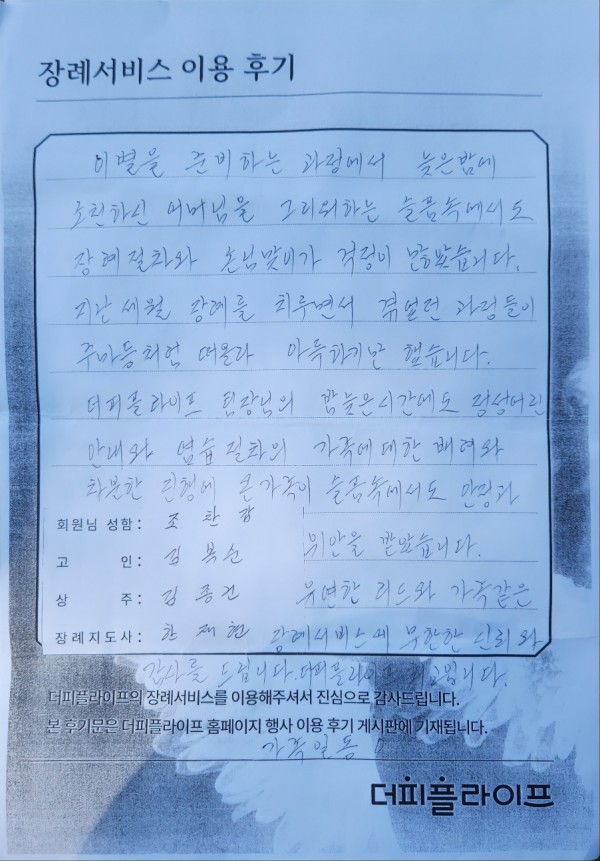 장례서비스 이용 후기
이별을 준비하는 과정에서 늦은밤에
소천하신 어머님을 그리워하는 슬픔속에서도
장례절차와 손님맞이가 걱정이 많았습니다.
지난세월 장례를 치루면서 겪었던 과정들이
주마등처럼 떠올라 아득하기만 했습니다.
더피플라이프 팀장님의 밤늦은시간에도 정성어린
안내와 염습절차의 가족에대한 배려와
차분한 진행에 온가족이 슬픔속에서도 안정과
회원님 성함: 조찬
위안을 받았습니다.
고 인: 김복순
상 주: 김종건
유연한 리드와 가족같은
장례지도사: 한재현 장례서비스에 무한한 신뢰와
감사를 드립니다. 더피플라이프
더피플라이프의 장례서비스를 이용해주셔서 진심으로 감사드립니다.
본 후기문은 더피플라이프 홈페이지 행사 이용 후기 게시판에 기재됩니다.
가족일동
더피플라이프